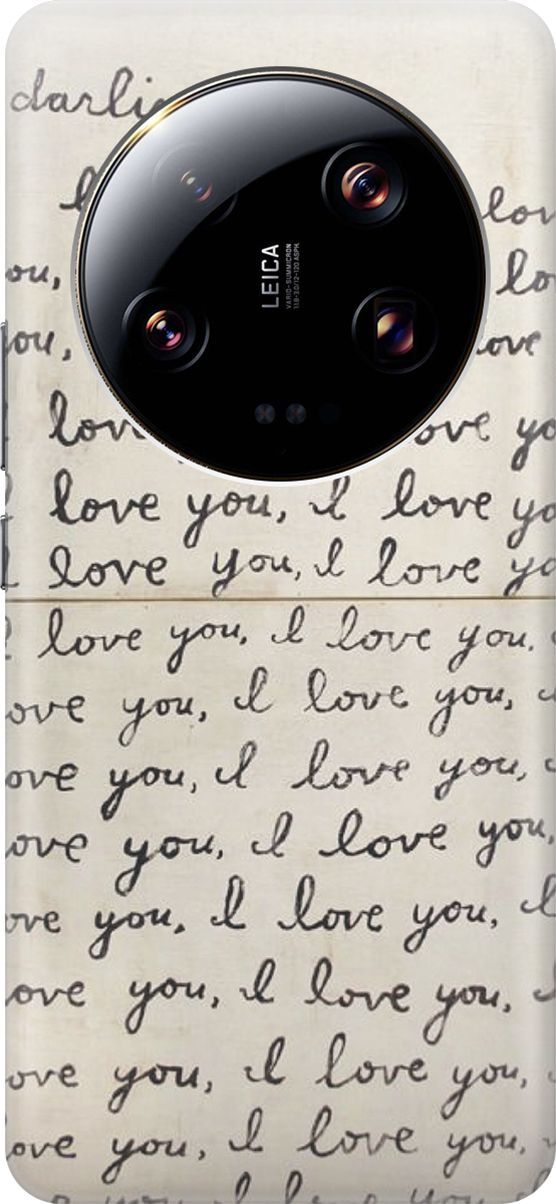 darli
l lov
ou, lo
you, ove
I lov ove yo
I love you, I love yo
I love you, I love yo
I love you, I love you,
ove you, I love you,
ove you, I love you,
ove you, I love you,
ove you, I love you, I
ove you, I love you,
ove you, I love you,
ove you, I love you,
LEICA
VARIO-SUMMICRON
1:1.8-3.0/12-120 ASPH.